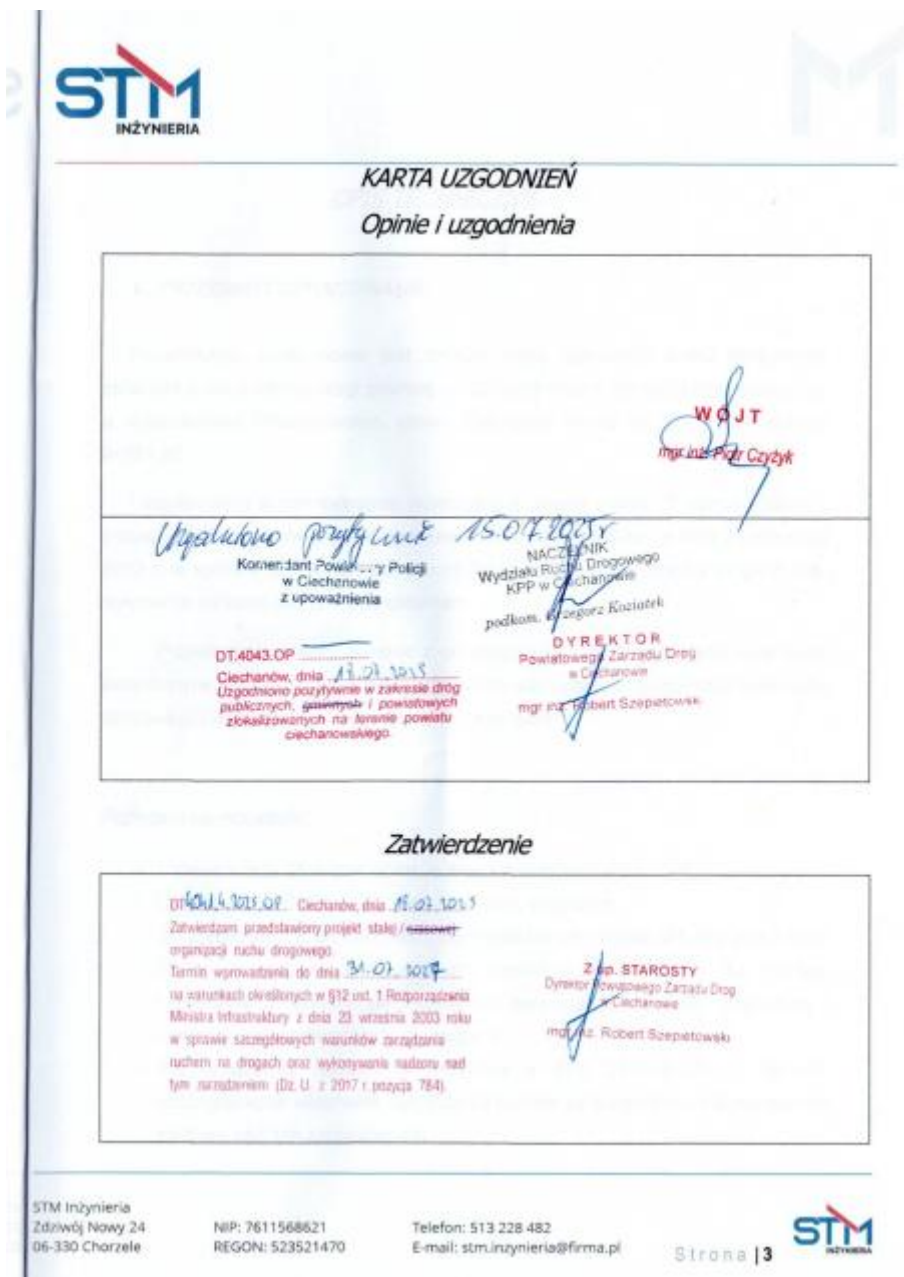 STM
INŻYNIERIA
KARTA UZGODNIEŃ
Opinie i uzgodnienia
WÓJT
mgr inż. Piotr Czyżyk
Uzgodniono pozytywnie 15.07.2025r
Komendant Powiatowy Policji
w Ciechanowie
z upoważnienia
NACZELNIK
Wydziału Ruchu Drogowego
KPP w Ciechanowie
podkom. Grzegorz Koziatek
DT.4043.OP
Ciechanów, dnia 17.07.2025
Uzgodniono pozytywnie w zakresie dróg
publicznych, gminnych i powiatowych
zlokalizowanych na terenie powiatu
ciechanowskiego.
DYREKTOR
Powiatowego Zarządu Dróg
w Ciechanowie
mgr inż. Robert Szepietowski
Zatwierdzenie
Ciechanów, dnia
Zatwierdzam przedstawiony projekt stałej / czasowej
organizacji ruchu drogowego.
Termin wprowadzenia do dnia 31.07.2027
na warunkach określonych w §12 ust. 1 Rozporządzenia
Ministra Infrastruktury z dnia 23 września 2003 roku
w sprawie szczegółowych warunków zarządzania
ruchem na drogach oraz wykonywania nadzoru nad
tym zarządzaniem (Dz. U. z 2017 r. pozycja 784).
Z up. STAROSTY
Dyrektor Powiatowego Zarządu Dróg
w Ciechanowie
mgr inż. Robert Szepietowski
STM Inżynieria
Zdziwój Nowy 24
06-330 Chorzele
NIP: 7611568621
REGON: 523521470
Telefon: 513 228 482
E-mail: stm.inzynieria@firma.pl
Strona | 3
STM
INŻYNIERIA